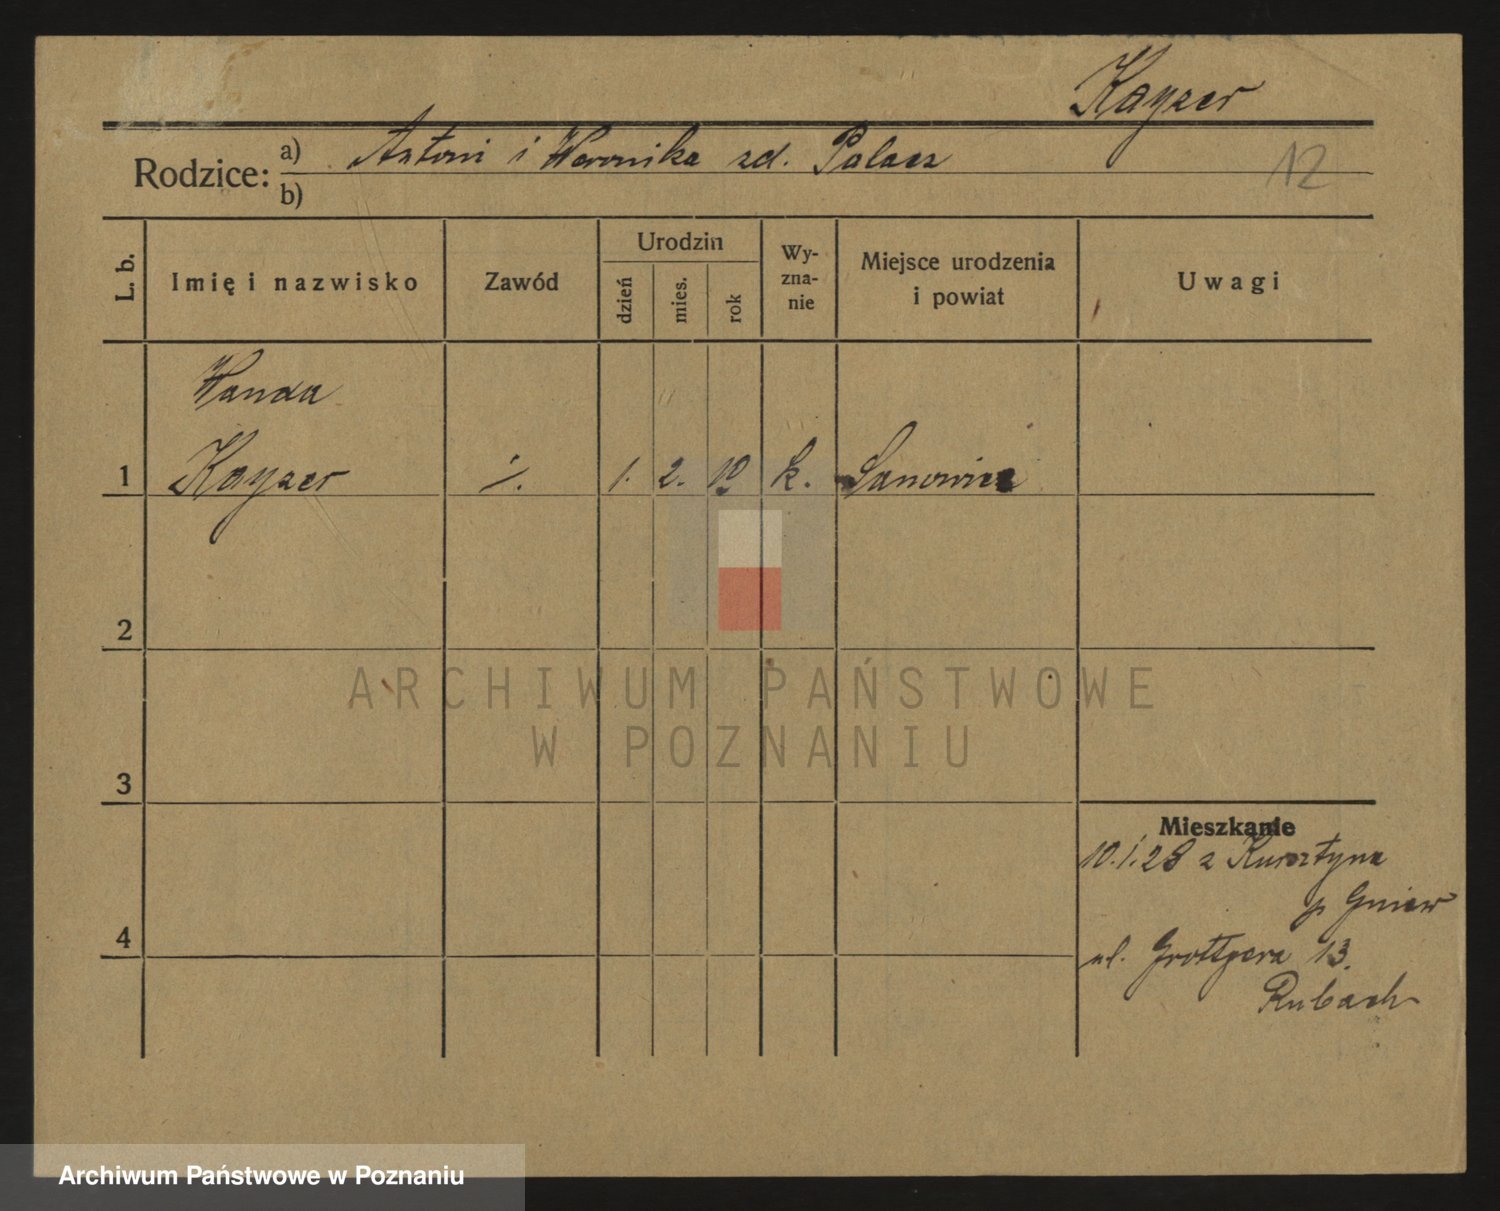 Kayzer
Rodzice: a) Antoni i Weronika zd. Palacz
12
b)
L. b.
Imię i nazwisko
Zawód
Urodzin
dzień
mies.
rok
Wy-
zna-
nie
Miejsce urodzenia
i powiat
Uwagi
Wanda
1 Kayzer ·/. 1. 2. 10 k. Sanowice
2
ARCHIWUM PAŃSTWOWE
W POZNANIU
3
Mieszkanie
10.1.28 z Kursztyna
p Gniew
4
ul. Grottgera 13.
Rubach
Archiwum Państwowe w Poznaniu